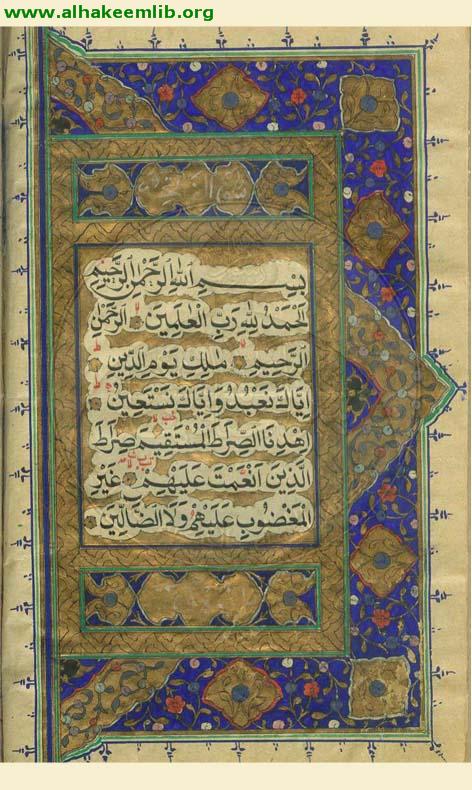 www.alhakeemlib.org
بِسْمِ اللهِ الرَّحْمٰنِ الرَّحِيمِ
اَلْحَمْدُ لِلّٰهِ رَبِّ الْعَالَمِينَ الرَّحْمٰنِ
الرَّحِيمِ مَالِكِ يَوْمِ الدِّينِ
اِيَّاكَ نَعْبُدُ وَاِيَّاكَ نَسْتَعِينُ
اِهْدِنَا الصِّرَاطَ الْمُسْتَقِيمَ صِرَاطَ
الَّذِينَ اَنْعَمْتَ عَلَيْهِمْ غَيْرِ
الْمَغْضُوبِ عَلَيْهِمْ وَلَا الضَّالِّينَ